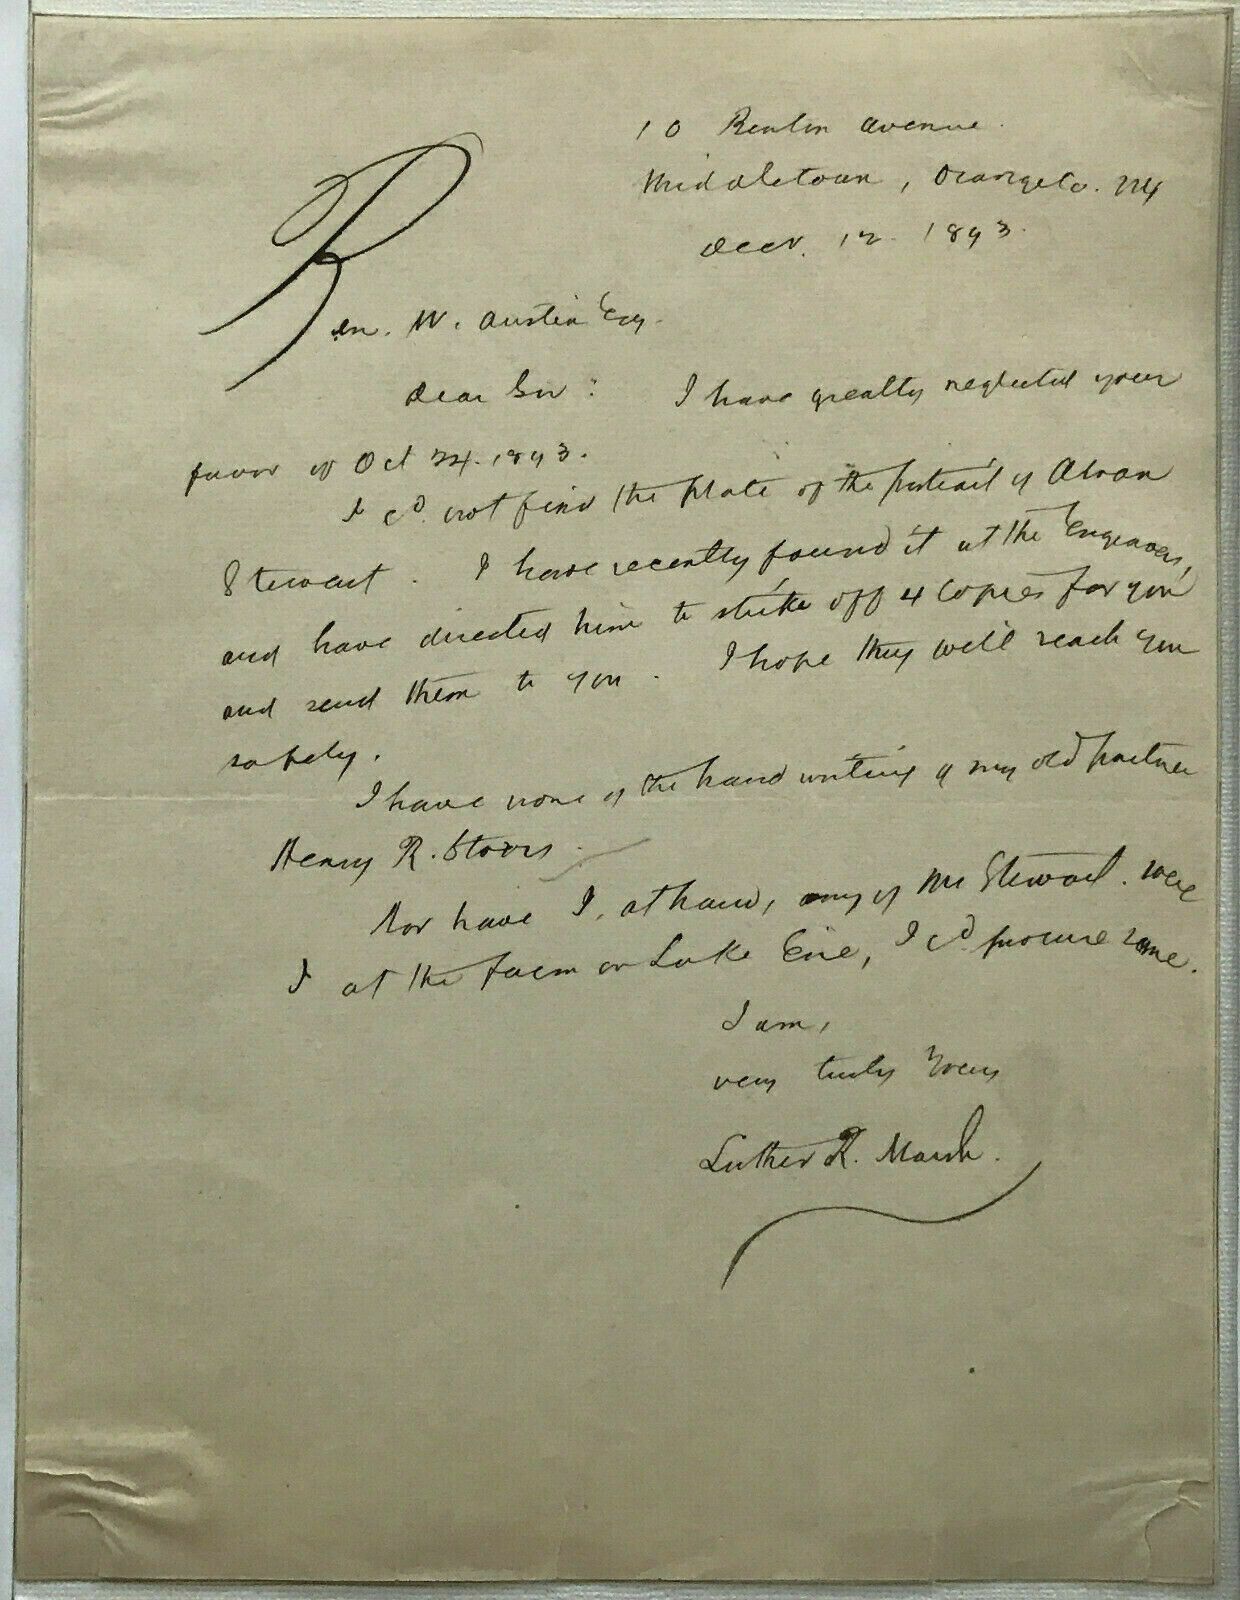 10 Benton Avenue.
Middletown, Orange Co. NY
Decr. 12. 1893.
Ben. W. Austin Esq.
Dear Sir: I have greatly neglected your
favor of Oct 24. 1893.
I cd. not find the plate of the portrait of Alvan
Stewart. I have recently found it at the Engravers,
and have directed him to strike off 4 copies for you
and send them to you. I hope they will reach you
safely.
I have none of the hand writing of my old partner
Henry R. Storrs.
Nor have I, at hand, any of Mr Stewart. Were
I at the farm on Lake Erie, I cd procure some.
I am,
very truly Yours
Luther R. Marsh.